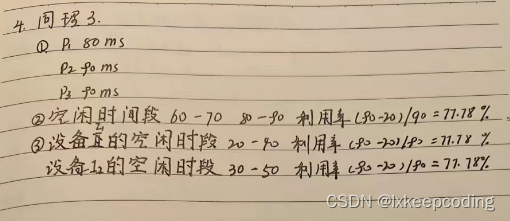 4. 同理3.
① P1 80 ms
P2 90 ms
P3 90 ms
②空闲时间段 60-70 80-90 利用率(90-20)/90=77.78%
③设备I1的空闲时段 20-40 利用率(90-20)/90=77.78%
设备I2的空闲时段 30-50 利用率(90-20)/90=77.78%
CSDN @lxkeepcoding